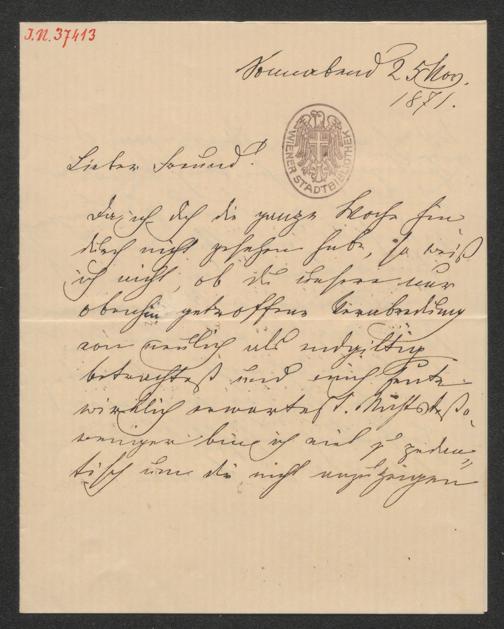 I.N. 37413
Sonnabend 25 Nov.
1871.
WIENER STADTBIBLIOTHEK
Lieber Freund!
Da ich dich die ganze Woche hin
durch nicht gesehen habe, so weiß
ich nicht, ob du unsere nur
obenhin getroffene Verabredung
von neulich als endgiltig
betrachtest und mich heute
wirklich erwartest. Nichtsdesto
weniger bin ich viel zu pedan
tisch um dir nicht anzuzeigen